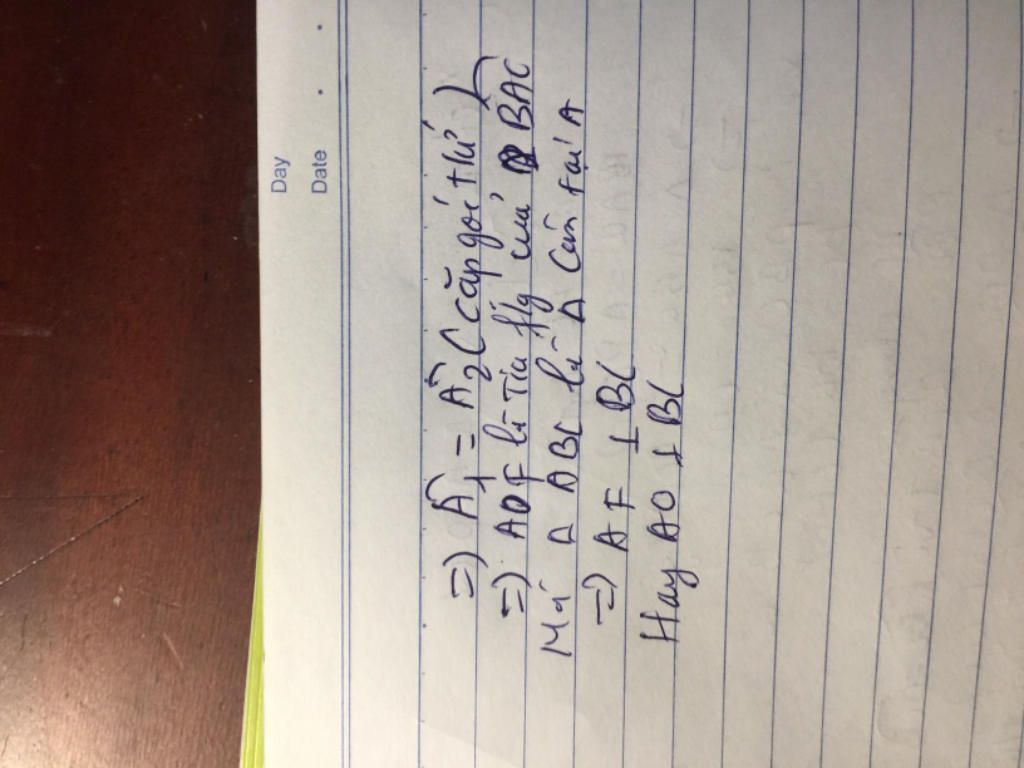 Day
Date . .
=) Â1 = Â2 ( cặp góc t/ứ )
=) AOF là tia f/g của BAC
Mà Δ ABC là Δ cân tại A
=) AF ⊥ BC
Hay AO ⊥ BC